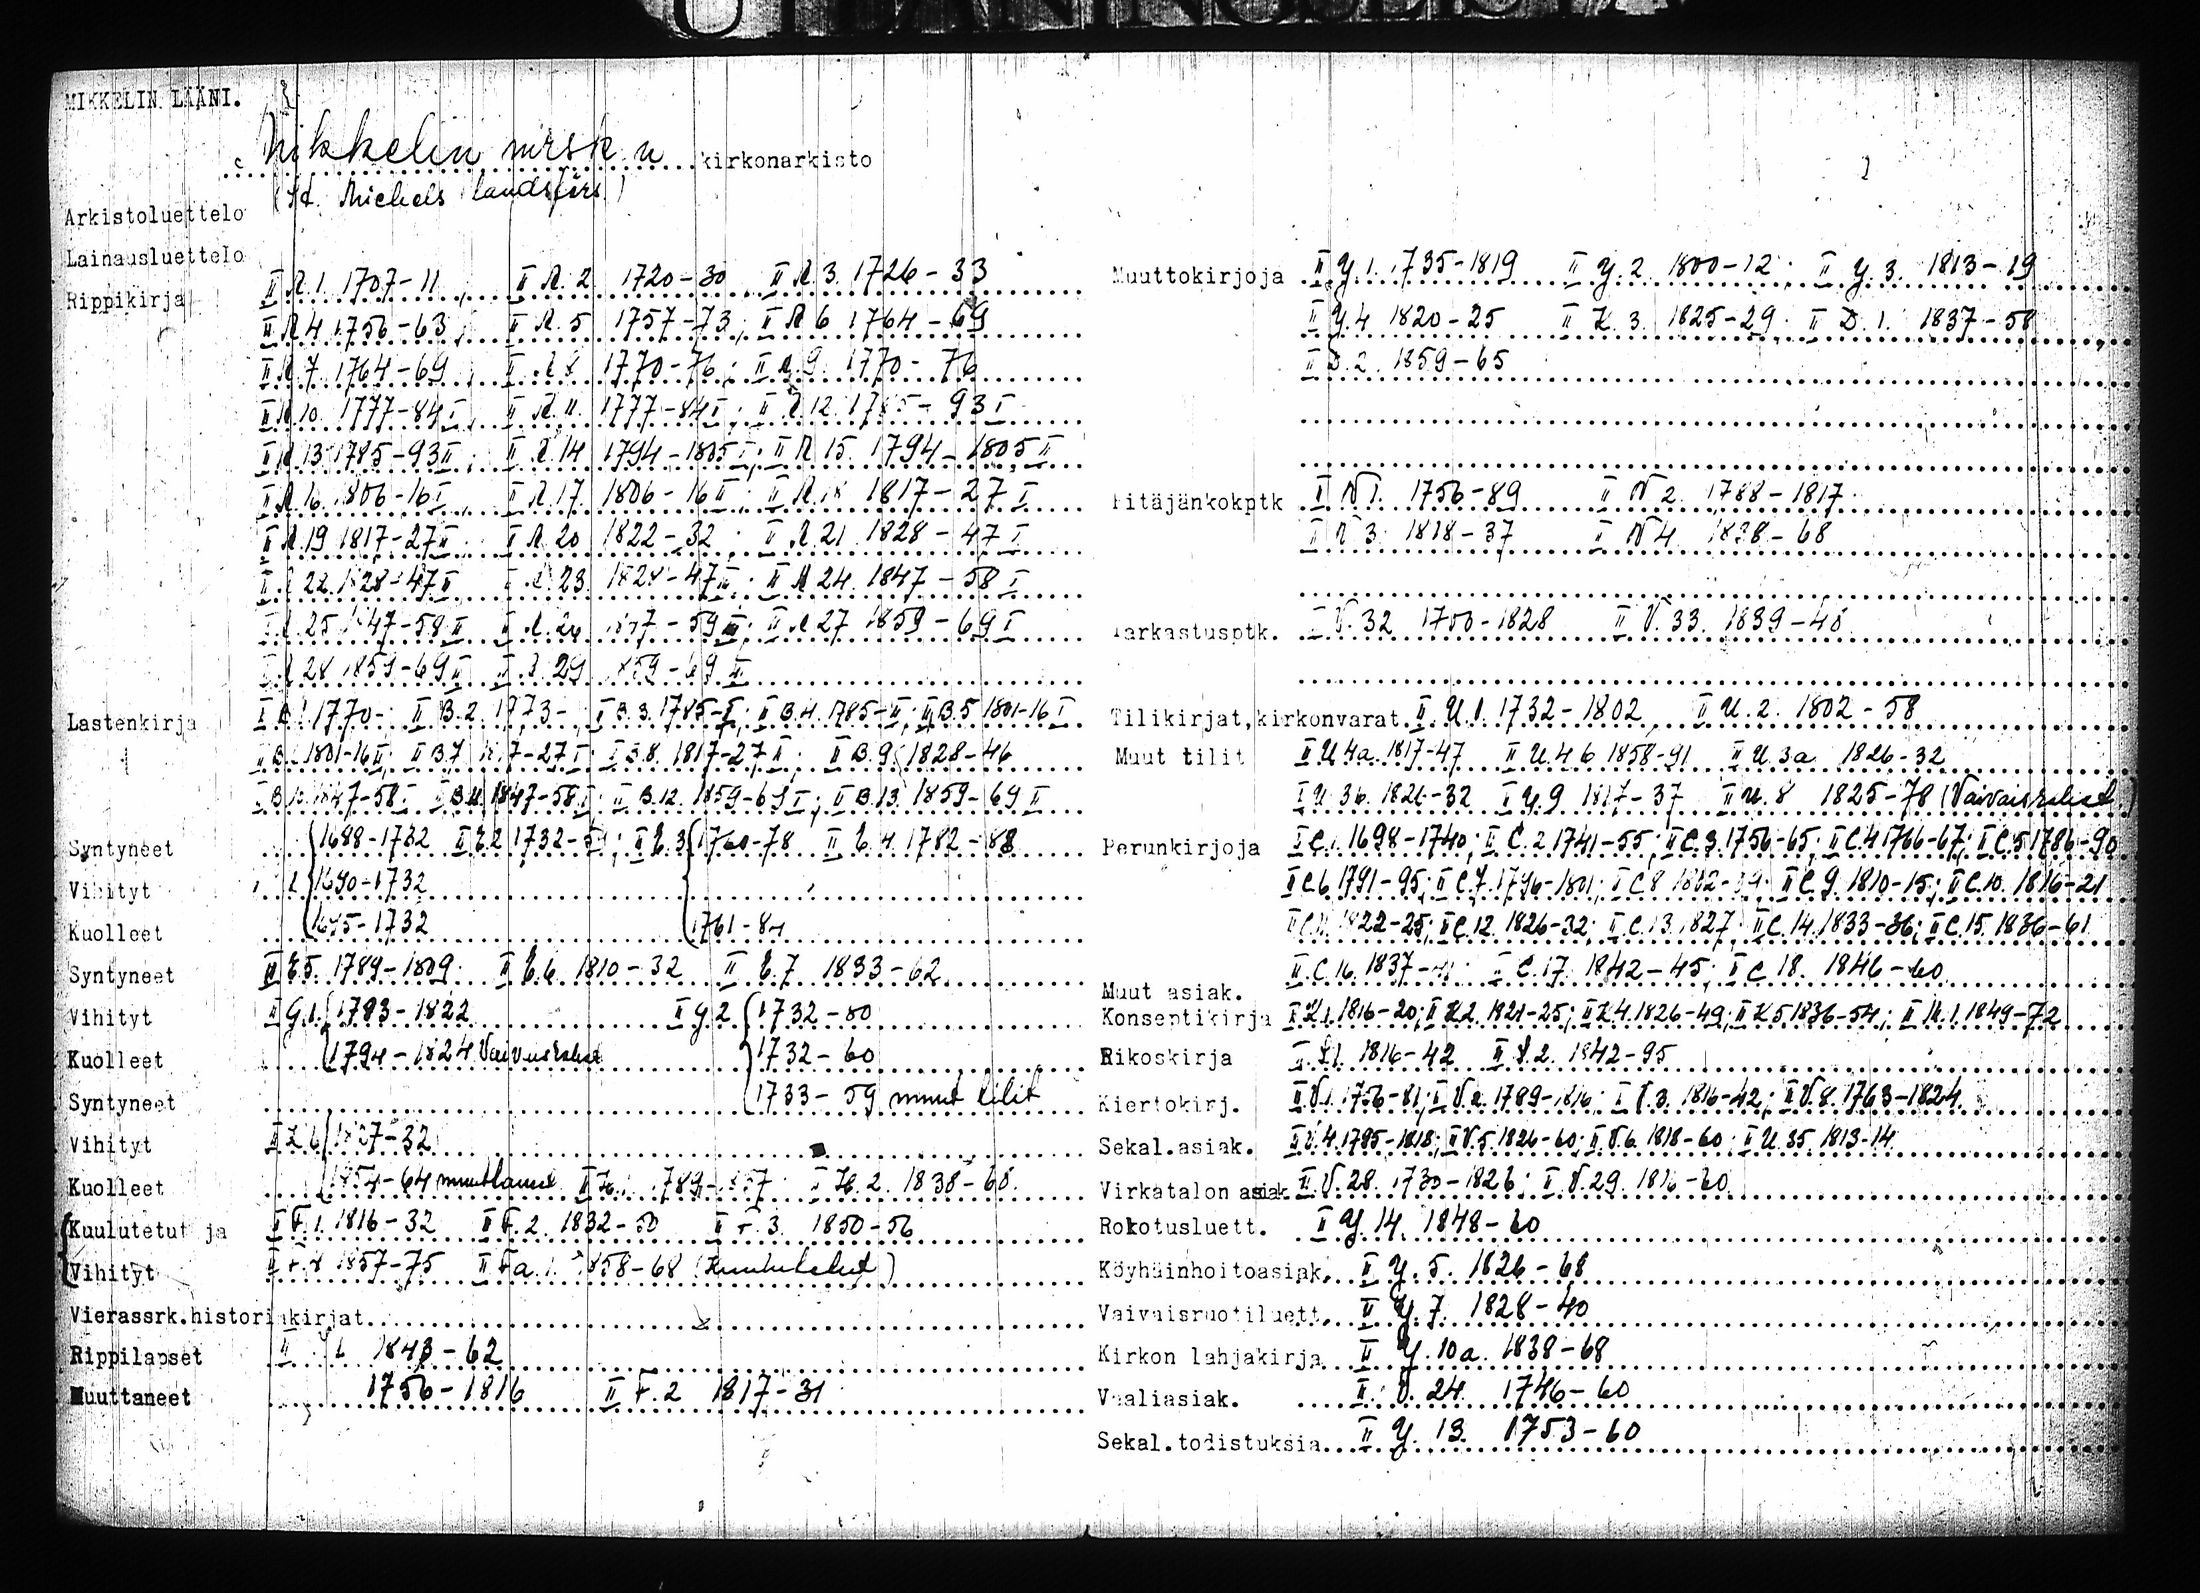 MIKKELIN LÄÄNI.
Mikkelin mrsk:n kirkonarkisto
(St. Michels landsförs.)
Arkistoluettelo
Lainausluettelo
Rippikirja II A.1. 1707-11, II A.2 1720-30 II A.3. 1726-33
II A 4 1756-63, II A.5 1757-73; II A 6 1764-69
II A.7 1764-69, II A.8 1770-76; II A.9. 1770-76
II A.10. 1777-84 I, II A.11. 1777-84 I; II A.12. 1785-93 I
II A.13 1785-93 II; II A.14 1794-1805 I; II A 15. 1794-1805 II
II A.16. 1806-16 I, II A.17. 1806-16 II; II A.18 1817-27 I
II A.19 1817-27 II II A.20 1822-32; II A.21 1828-47 I
II A 22. 1828-47 II II A.23. 1828-47 II; II A 24. 1847-58 I
II A.25 1847-58 II II A.26 -59; II A 27 1859-69 I
II A 28 1859-69 II II A.29 1859-69 II
Lastenkirja II B.1. 1770- II B.2. 1773- II B.3. 1785-I; II B.4. 1785-II; II B.5 1801-16 I
II B. 1801-16 II; II B.7 1817-27 I; II B.8. 1817-27 II; II B.9. 1828-46
II B.10. 1847-58 I II B.11. 1847-58 II B.12. 1859-69 I; II B.13. 1859-69 II
Syntyneet 1688-1732 1732- ; 1760-78 1782-88
Vihityt 1690-1732
Kuolleet -1732 1761-
Syntyneet 5. 1789-1809 6. 1810-32 7 1833-62
Vihityt II G.1. 1793-1822 II G.2 1732-60
Kuolleet 1794-1824 1732-60
Syntyneet 1733-59 muut tilit
Vihityt 1827-32
Kuolleet 1854-64 muuttaneet II H.1 II H.2. 1838-60
Kuulutetut ja II F.1. 1816-32 II F.2. 1832-50 II F.3. 1850-56
Vihityt II F.4 1857-75 II Fa.1. 1858-68 (Kuulutetut)
Vierassrk.historiakirjat
Rippilapset II 1843-62
Muuttaneet 1756-1816 II F.2 1817-31
Muuttokirjoja II Y.1. 1735-1819 II Y.2. 1800-12; II Y.3. 1813-19
II Y.4 1820-25 II K.3. 1825-29 II D.1. 1837-58
II D.2. 1859-65
Pitäjänkokptk II N 1. 1756-89 II N 2. 1788-1817
II N 3. 1818-37 II N 4 1838-68
Tarkastusptk. II V.32 1750-1828 II V.33. 1839-40
Tilikirjat,kirkonvarat II U.1. 1732-1802, II U.2. 1802-58
Muut tilit II U 4a. 1817-47 II U.4 b 1858-91 II U.3a 1826-32
II U 3b. 1826-32 II Y.9 1817-37 II U.8 1825-78
Perunkirjoja II C.1. 1698-1740; II C.2 1741-55; II C.3. 1756-65; II C.4 1766-67; II C.5 1786-90
II C.6. 1791-95; II C.7. 1796-1801; II C.8 ; II C.9. 1810-15; II C.10. 1816-21
II C.11. 1822-25; II C.12. 1826-32; II C.13. 1827; II C.14. 1833-36; II C.15. 1836-61
II C.16. 1837-41; II C.17. 1842-45; II C 18. 1846-60
Muut asiak.
Konseptikirja II K.1. 1816-20; II K.2. 1821-25; II K.4. 1826-49; II K.5 1836-54; 1849-72
Rikoskirja 1. 1816-42 2. 1842-95
Kiertokirj. II V.1. 1756-81; II V.2. 1789-1816; II V.3. 1816-42; II V.8. 1763-1824
Sekal.asiak. II V.4. 1795-1818; II V.5. 1826-60; II V.6. 1818-60; II U.35. 1813-14
Virkatalon asiak II V.28. 1730-1826; II V.29. 1816-60
Rokotusluett. II Y.14. 1848-60
Köyhäinhoitoasiak. II Y.5. 1826-68
Vaivaisruotiluett. II Y.7. 1828-40
Kirkon lahjakirja II Y.10a. 1838-68
Vaaliasiak. II V.24. 1746-60
Sekal.todistuksia II Y.13. 1753-60